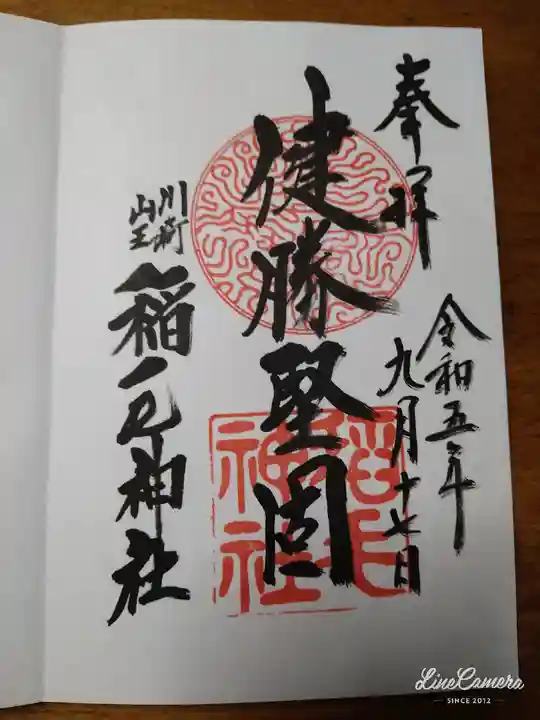 奉拝
令和五年
九月十七日
健勝堅固
川崎
山王
稲毛神社
稲毛
神社
LineCamera
SINCE 2012